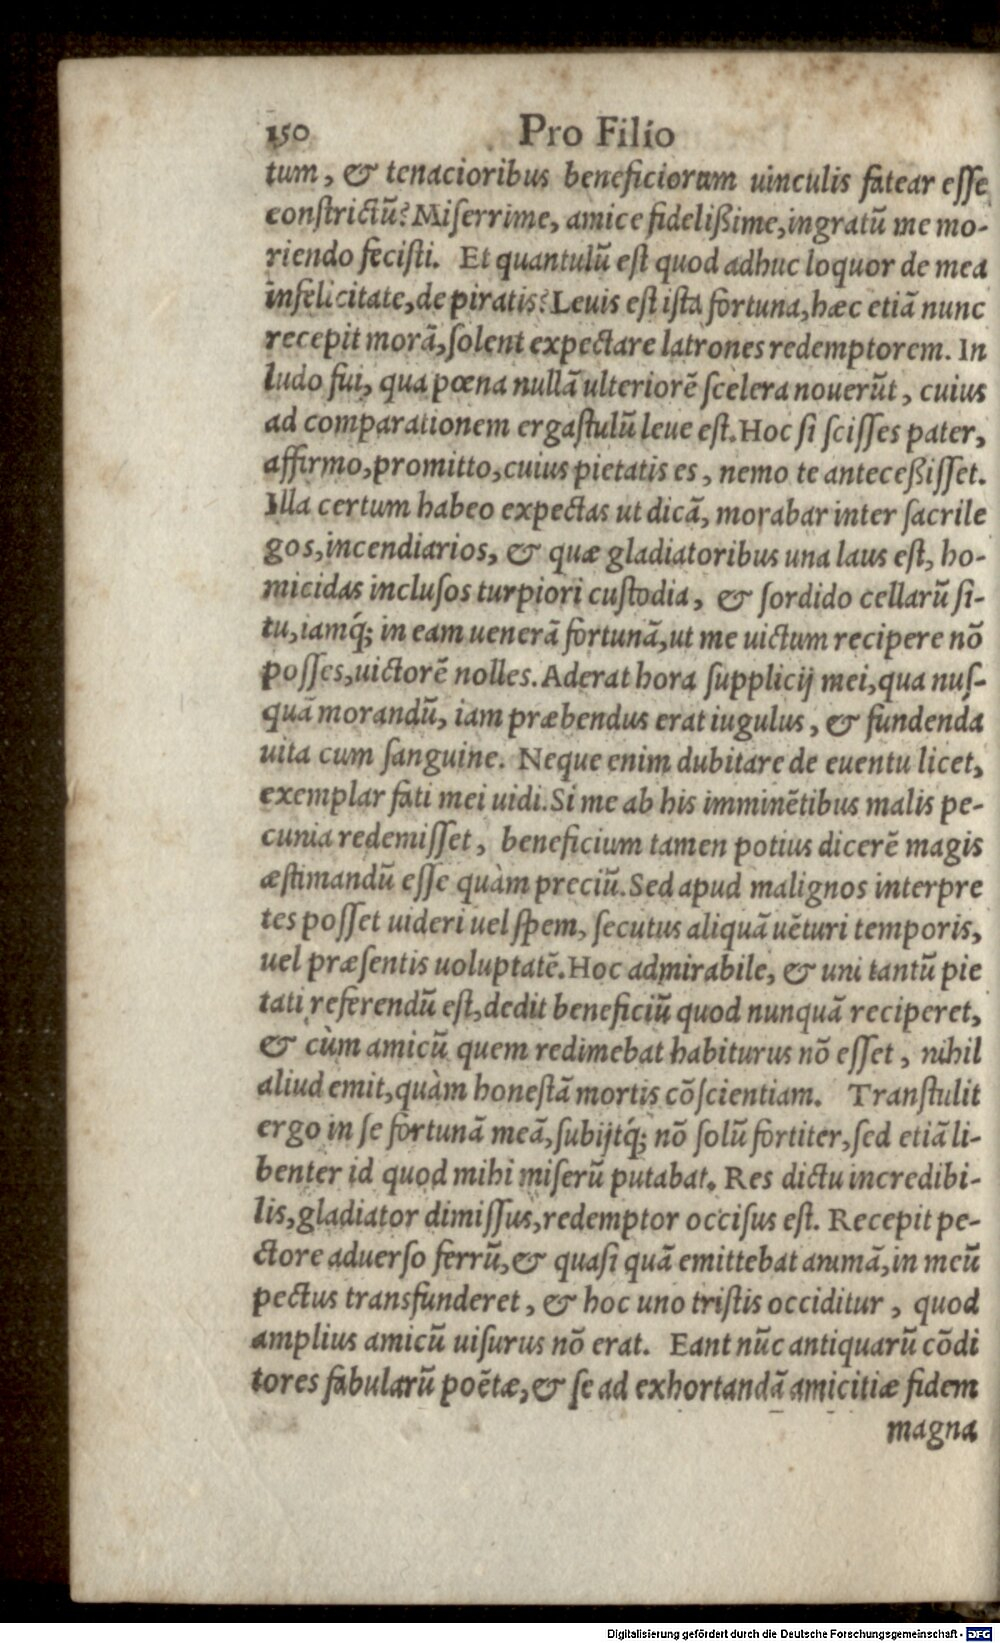 150 Pro Filio
tum, & tenacioribus beneficiorum uinculis fatear esse
constrictū? Miserrime, amice fidelißime, ingratū me mo-
riendo fecisti. Et quantulū est quod adhuc loquor de mea
infelicitate, de piratis? Leuis est ista fortuna, hæc etiā nunc
recepit morā, solent expectare latrones redemptorem. In
ludo fui, qua pœna nullā ulteriorē scelera nouerūt, cuius
ad comparationem ergastulū leue est. Hoc si scisses pater,
affirmo, promitto, cuius pietatis es, nemo te anteceßisset.
Illa certum habeo expectas ut dicā, morabar inter sacrile
gos, incendiarios, & quæ gladiatoribus una laus est, ho-
micidas inclusos turpiori custodia, & sordido cellarū si-
tu, iamq́; in eam uenerā fortunā, ut me uictum recipere nō
posses, uictorē nolles. Aderat hora supplicij mei, qua nus-
quā morandū, iam præbendus erat iugulus, & fundenda
uita cum sanguine. Neque enim dubitare de euentu licet,
exemplar fati mei uidi. Si me ab his imminētibus malis pe-
cunia redemisset, beneficium tamen potius dicerē magis
æstimandū esse quàm preciū. Sed apud malignos interpre
tes posset uideri uel spem, secutus aliquā uēturi temporis,
uel præsentis uoluptatē. Hoc admirabile, & uni tantū pie
tati referendū est, dedit beneficiū quod nunquā reciperet,
& cùm amicū quem redimebat habiturus nō esset, nihil
aliud emit, quàm honestā mortis cōscientiam. Transtulit
ergo in se fortunā meā, subijtq́; nō solū fortiter, sed etiā li-
benter id quod mihi miserū putabat. Res dictu incredibi-
lis, gladiator dimissus, redemptor occisus est. Recepit pe-
ctore aduerso ferrū, & quasi quā emittebat animā, in meū
pectus transfunderet, & hoc uno tristis occiditur, quod
amplius amicū uisurus nō erat. Eant nūc antiquarū cōdi
tores fabularū poētæ, & se ad exhortandā amicitiæ fidem
magna
Digitalisierung gefördert durch die Deutsche Forschungsgemeinschaft - DFG